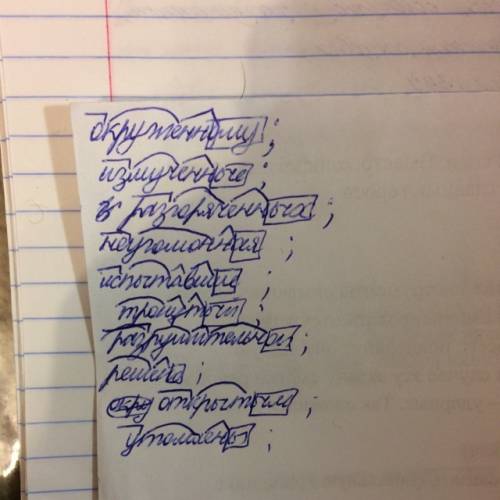 окруженному;
измученные;
в разгоряченных;
неугомонная;
испытавшие;
тронутый;
разрушительной;
решена;
открытые;
утомлены;